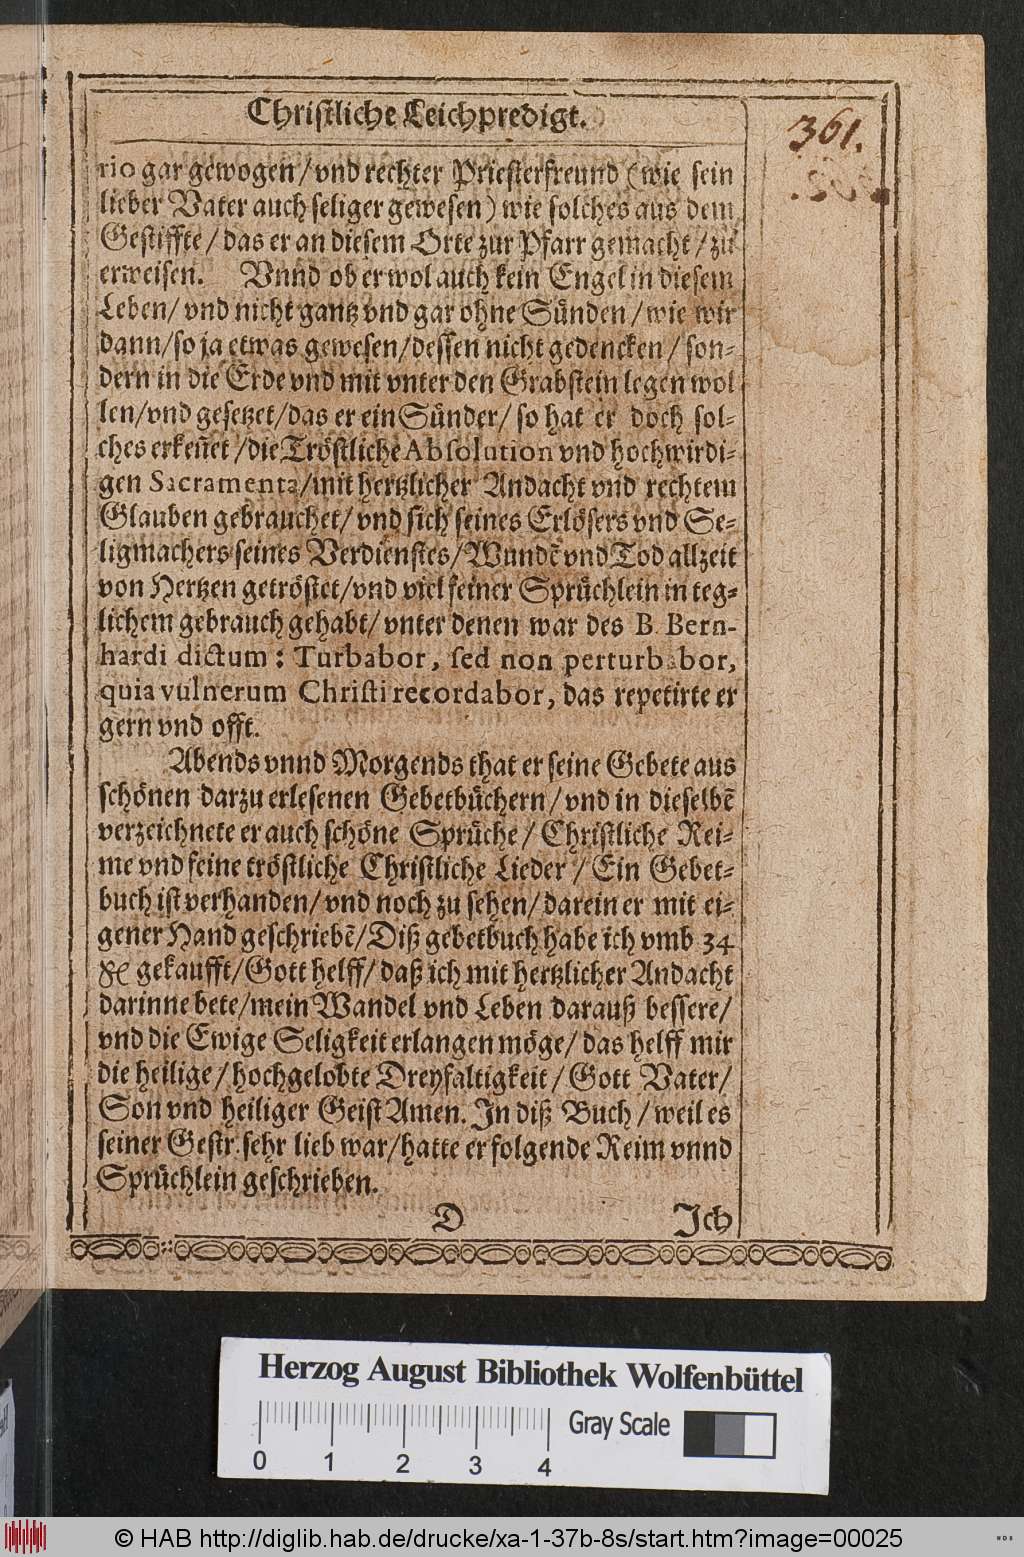 Christliche Leichpredigt.
361.
rio gar gewogen/vnd rechter Priesterfreund (wie sein
lieber Vater auch seliger gewesen) wie solches aus dem
Gestiffte/das er an diesem Orte zur Pfarr gemacht/zu
erweisen. Vnnd ob er wol auch kein Engel in diesem
Leben/vnd nicht gantz vnd gar ohne Sünden/wie wir
dann/so ja etwas gewesen/dessen nicht gedencken/son-
dern in die Erde vnd mit vnter den Grabstein legen wol
len/vnd gesetzet/das er ein Sünder/so hat er doch sol-
ches erkeñet/die Tröstliche Absolution vnd hochwirdi-
gen Sacramenta/mit hertzlicher Andacht vnd rechtem
Glauben gebrauchet/vnd sich seines Erlösers vnd Se-
ligmachers seines Verdienstes/Wundẽ vnd Tod allzeit
von Hertzen getröstet/vnd viel feiner Sprüchlein in teg-
lichem gebrauch gehabt/vnter denen war des B. Bern-
hardi dictum: Turbabor, sed non perturbabor,
quia vulnerum Christi recordabor, das repetirte er
gern vnd offt.
Abends vnnd Morgends that er seine Gebete aus
schönen darzu erlesenen Gebetbüchern/vnd in dieselbẽ
verzeichnete er auch schöne Sprüche/Christliche Rei-
me vnd feine tröstliche Christliche Lieder/Ein Gebet-
buch ist verhanden/vnd noch zu sehen/darein er mit ei-
gener Hand geschriebẽ/Diß gebetbuch habe ich vmb 34
gekaufft/Gott helff/daß ich mit hertzlicher Andacht
darinne bete/mein Wandel vnd Leben darauß bessere/
vnd die Ewige Seligkeit erlangen möge/das helff mir
die heilige/hochgelobte Dreyfaltigkeit/Gott Vater/
Son vnd heiliger Geist Amen. In diß Buch/weil es
seiner Gestr. sehr lieb war/hatte er folgende Reim vnnd
Sprüchlein geschrieben.
D Jch
Herzog August Bibliothek Wolfenbüttel
Gray Scale
0 1 2 3 4
© HAB http://diglib.hab.de/drucke/xa-1-37b-8s/start.htm?image=00025